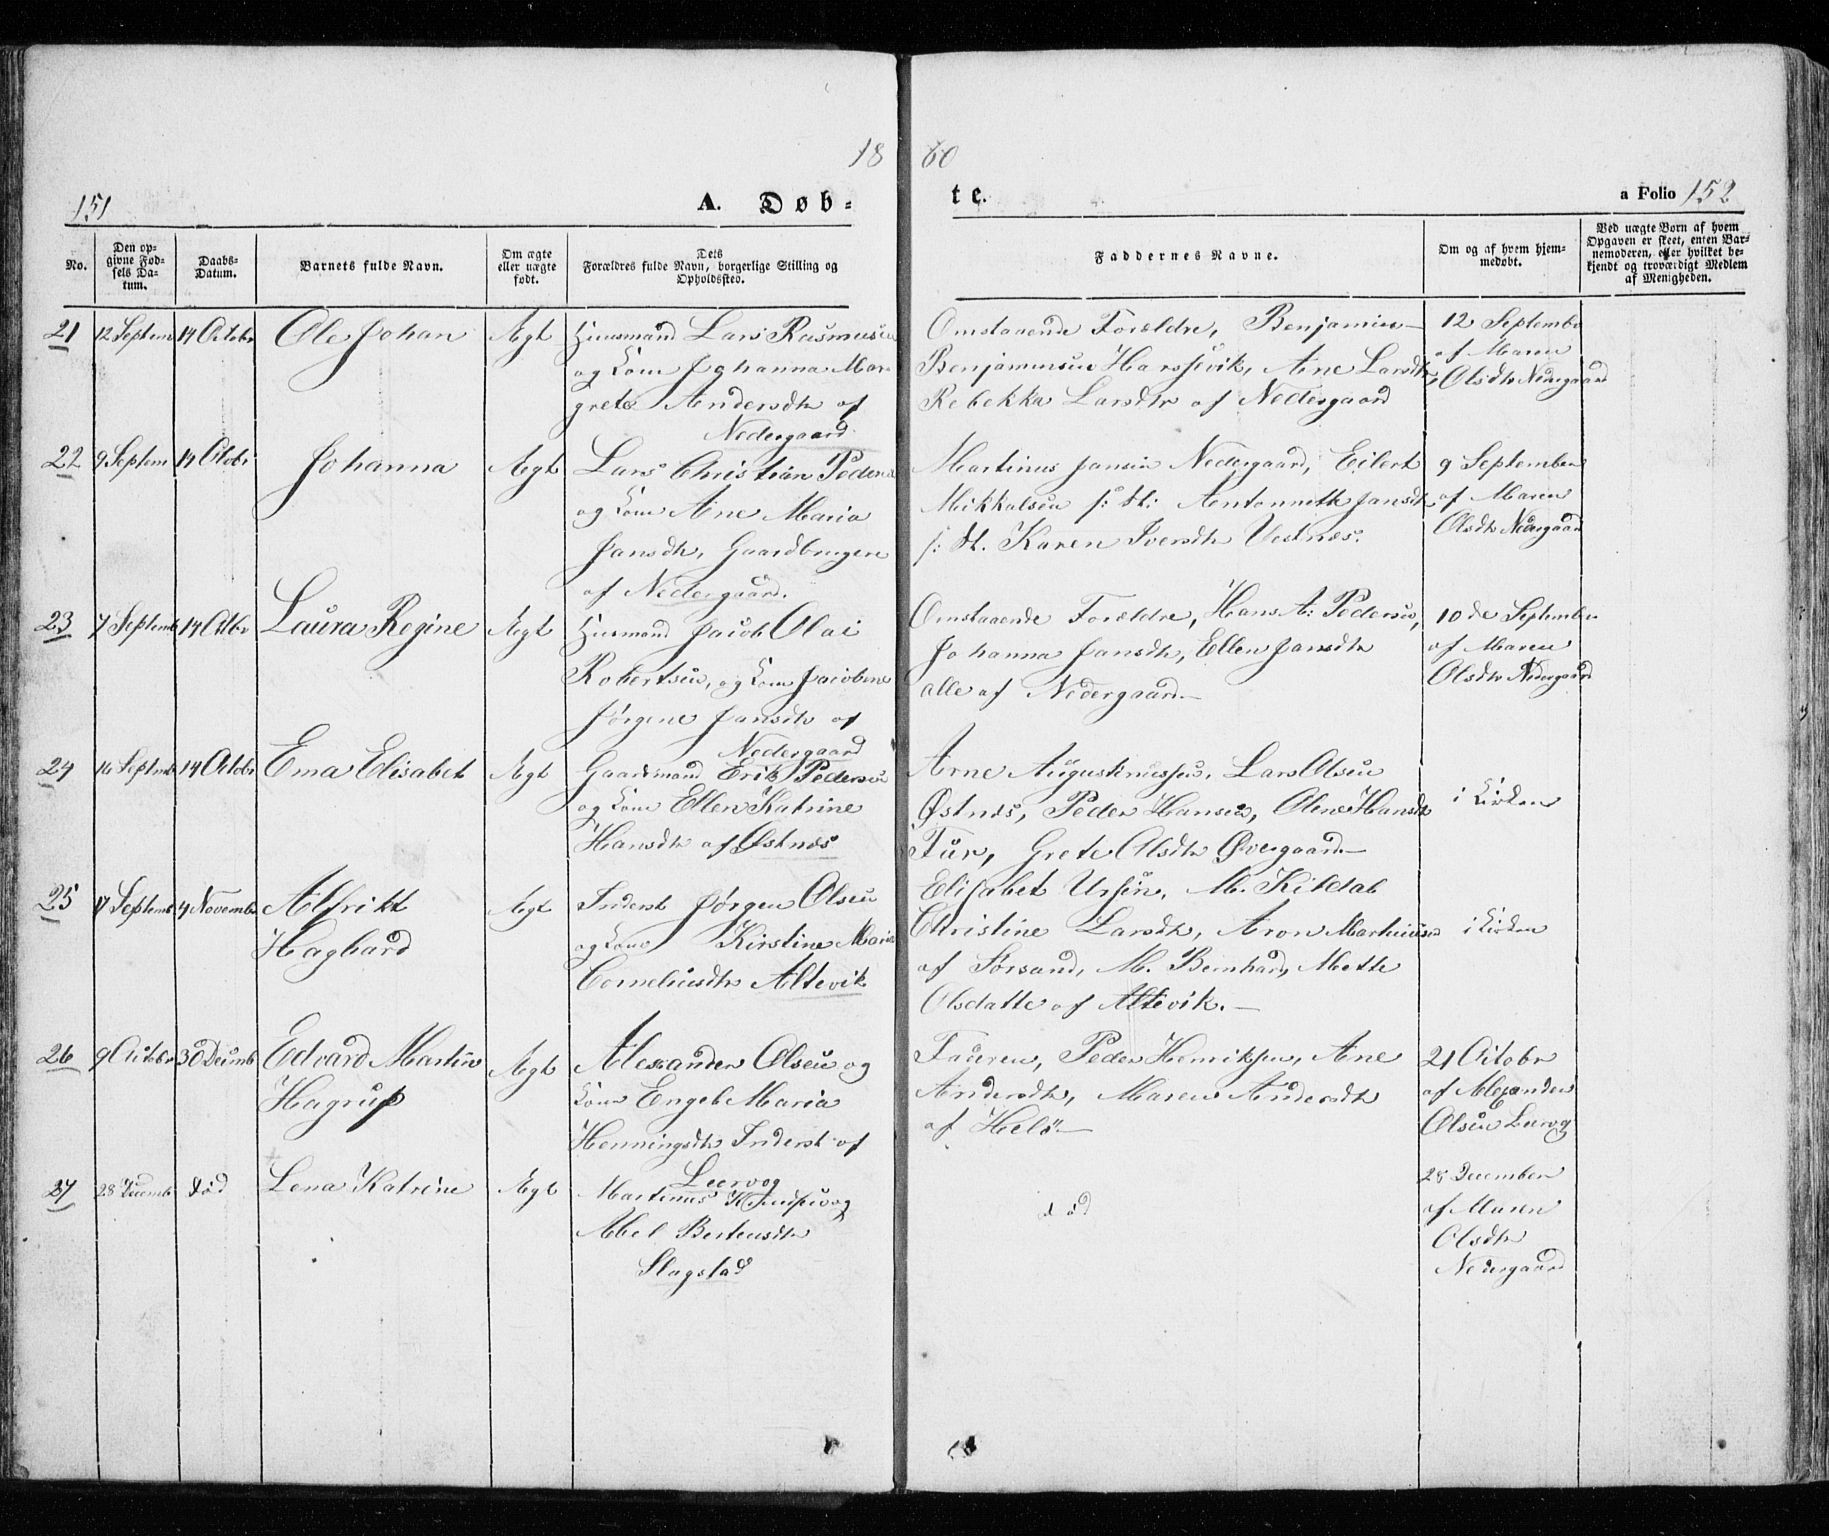 18 60
151
A. Døb-
te.
a Folio 152
No.
Den op-
givne Fød-
sels Da-
tum.
Daabs-
Datum.
Barnets fulde Navn.
Om ægte
eller uægte
født.
Dets
Forældres fulde Navn, borgerlige Stilling og
Opholdssted.
Faddernes Navne.
Om og af hvem hjem-
medøbt.
Ved uægte Børn af hvem
Opgaven er skeet, enten Bar-
nemoderen, eller hvilket be-
kjendt og troværdigt Medlem
af Menigheden.
21
12 Septemb
14 Octobr
Ole Johan
Ægt
Huusmand Lars Rasmusen
og Kone Johanna Mar-
grete Andersdtr af
Nedergaard
Omstaaende Forældre, Benjamin
Benjaminsen Harshvik, Ane Larsdtr
Rebekka Larsdtr af Nedergaard
12 Septembr
af Maren
Olsdtr Nedergaard
22
9 Septem
14 Octobr
Johanna
Ægt
Lars Christian Peders
og Kone Ane Maria
Jansdtr, Gaardbruger
af Nedergaard.
Martinus Jansen Nedergaard, Eilert
Mikkalsen s: st: Antonneth Jansdtr
s: st. Karen Iversdtr Vestnes.
9 September
af Maren
Olsdtr Nedergaard
23
7 Septemb
14 Octbr
Laura Regine
Ægt
Husmand Jacob Olai
Robertsen, og Kone Jacobine
Jørgene Jansdtr af
Nedergaard
Omstaaende Forældre, Hans A: Pedersen,
Johanna Jansdtr, Ellen Jansdtr
alle af Nedergaard.
10de September
af Maren
Olsdtr Nedergaard
24
16 Septmb
14 Octobr
Ema Elisabet
Ægt
Gaardmand Erik Pedersen
og Kone Ellen Katrine
Hansdtr af Østnæs
Arne Augustinussen, Lars Olsen
Østnæs, Peder Hansen, Oline Hansdtr
Tur, Grete Olsdtr Øvergaard
i Kirken
25
17 Septemb
4 Novembr
Alfrikt
Hagbard
Ægt
Inderst Jørgen Olsen
og Kone Kirstine Marie
Corneliusdtr Altevik
Elisabet Ursin, M. Kildal
Christine Larsdtr, Aron Martinusen
af Forsand, M. Bernhard, Mette
Olsdatte af Altevik.
i Kirken
26
9 Octobr
30 Decmb
Edvard Martin
Hagrup
Ægt
Alexander Olsen og
Kone Engel Maria
Henningsdtr Inderst af
Leervog
Faderen, Peder Henriksen, Ane
Andersdtr, Maren Andersdtr
af Helø
21 Octobr
af Alexander
Olsen Lervog
27
28 Decemb
død
Lena Katrine
Ægt
Martinus og
Abel Berteusdtr
Slagstad
død
28 December
af Maren
Olsdtr
Nedergaard